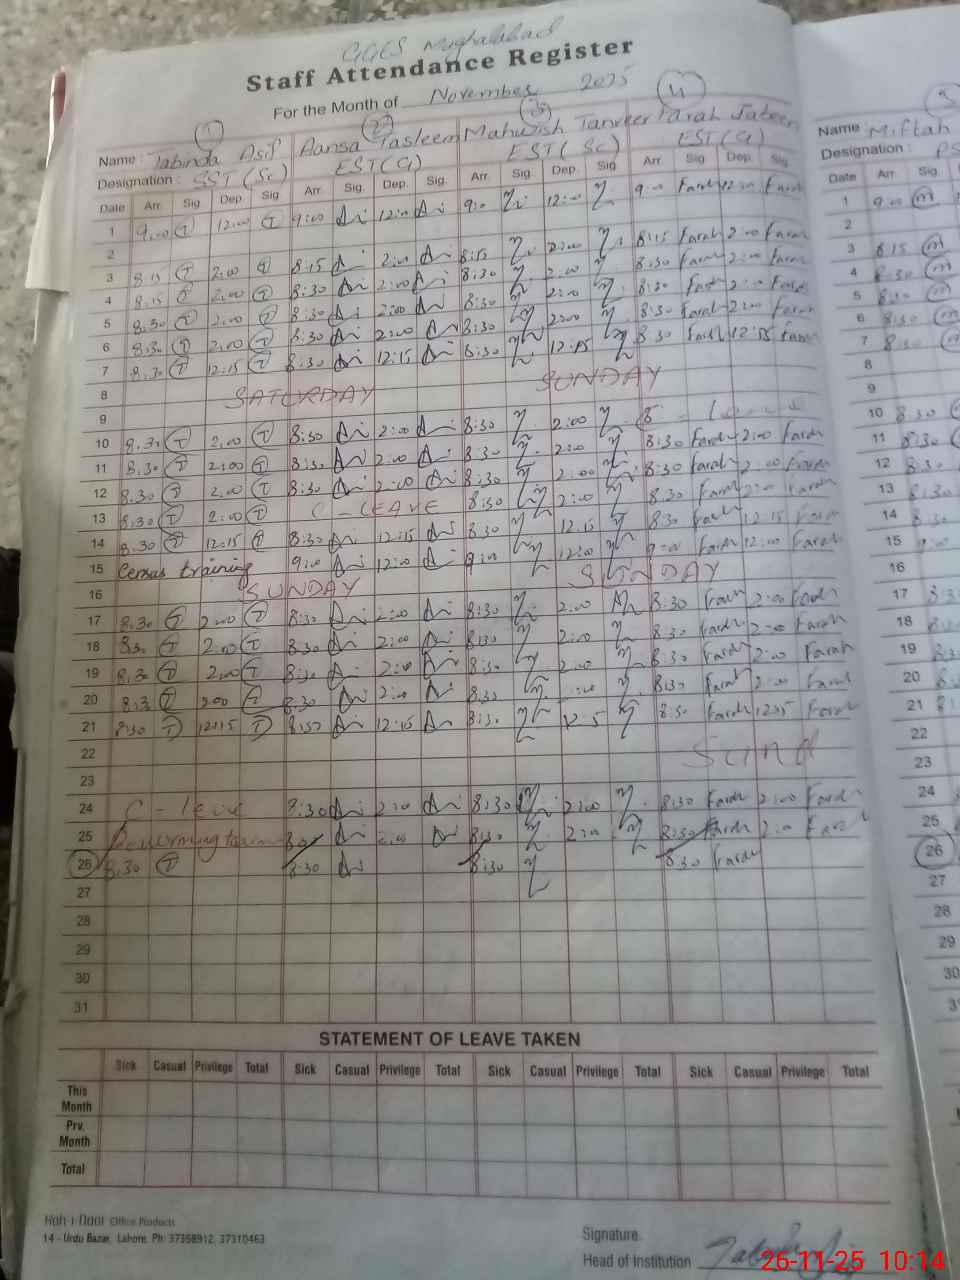 GGES Mughalabad
Staff Attendance Register
For the Month of November 2025
1 2 3 4 5
Name : Tabinda Asif Aansa Tasleem Mahwish Tanveer Farah Jabeen Name : Miftah
Designation : SST (Sc) EST(G) EST(Sc) EST(G) Designation : PS
Date Arr. Sig. Dep. Sig. Arr. Sig. Dep. Sig. Arr. Sig. Dep. Sig. Arr. Sig. Dep. Sig. Date Arr. Sig.
1 9.00 T 12:00 T 9:00 12:00 9:00 12:00 9:00 Farah 12:00 Farah 1 9.00 m
2 2
3 8:15 T 2:00 T 8:15 2:00 8:15 2:00 8:15 Farah 2:00 Farah 3 8.15 m
4 8.15 T 2:00 T 8:30 2:00 8:30 2:00 8:30 Farah 2:00 Farah 4 8.30 m
5 8.30 T 2:00 T 8:30 2:00 8:30 2:00 8:30 Farah 2:00 Farah 5 8:30 m
6 8.30 T 2:00 T 8:30 2:00 8:30 2:00 8:30 Farah 2:00 Farah 6 8:30 m
7 8.30 T 12:15 T 8:30 12:15 8:30 12:15 8:30 Farah 12:15 Farah 7 8:30
8 SATURDAY SUNDAY 8
9 9
10 8.30 T 2:00 T 8:30 2:00 8:30 2:00 10 8.30
11 8.30 T 2:00 T 8:30 2:00 8:30 2:00 8:30 Farah 2:00 Farah 11 8:30
12 8.30 T 2:00 T 8:30 2:00 8:30 2:00 8:30 Farah 2:00 Farah 12 8:30
13 8.30 T 2:00 T C-LEAVE 8:30 2:00 8.30 Farah 2:00 Farah 13 8:30
14 8.30 T 12:15 T 8:30 12:15 8:30 12:15 8:30 Farah 12:15 Farah 14 8:30
15 Census training 9:00 12:00 9:00 12:00 9:00 Farah 12:00 Farah 15 9:00
16 SUNDAY SUNDAY 16
17 8.30 T 2:00 T 8:30 2:00 8:30 2:00 8:30 Farah 2:00 Farah 17
18 8:30 T 2:00 T 8:30 2:00 8:30 2:00 8:30 Farah 2:00 Farah 18
19 8.30 T 2:00 T 8:30 2:00 8:30 2:00 8:30 Farah 2:00 Farah 19
20 8.30 T 2:00 T 8:30 2:00 8:30 8:30 Farah 2:00 Farah 20
21 8:30 T 12:15 T 8:30 12:15 8:30 8:30 Farah 12:15 Farah 21
22 22
23 23
24 C-leave 8:30 2:00 8:30 2:00 8:30 Farah 2:00 Farah 24
25 8:30 2:00 8:30 2:00 8:30 Farah 2:00 Farah 25
26 8.30 T 8:30 8:30 8:30 Farah 26
27 27
28 28
29 29
30 30
31
STATEMENT OF LEAVE TAKEN
Sick Casual Privilege Total Sick Casual Privilege Total Sick Casual Privilege Total Sick Casual Privilege Total
This Month
Prv. Month
Total
Koh-i-Noor Office Products
14 - Urdu Bazar, Lahore. Ph: 37358912, 37310463
Signature.
Head of Institution
26-11-25 10:14